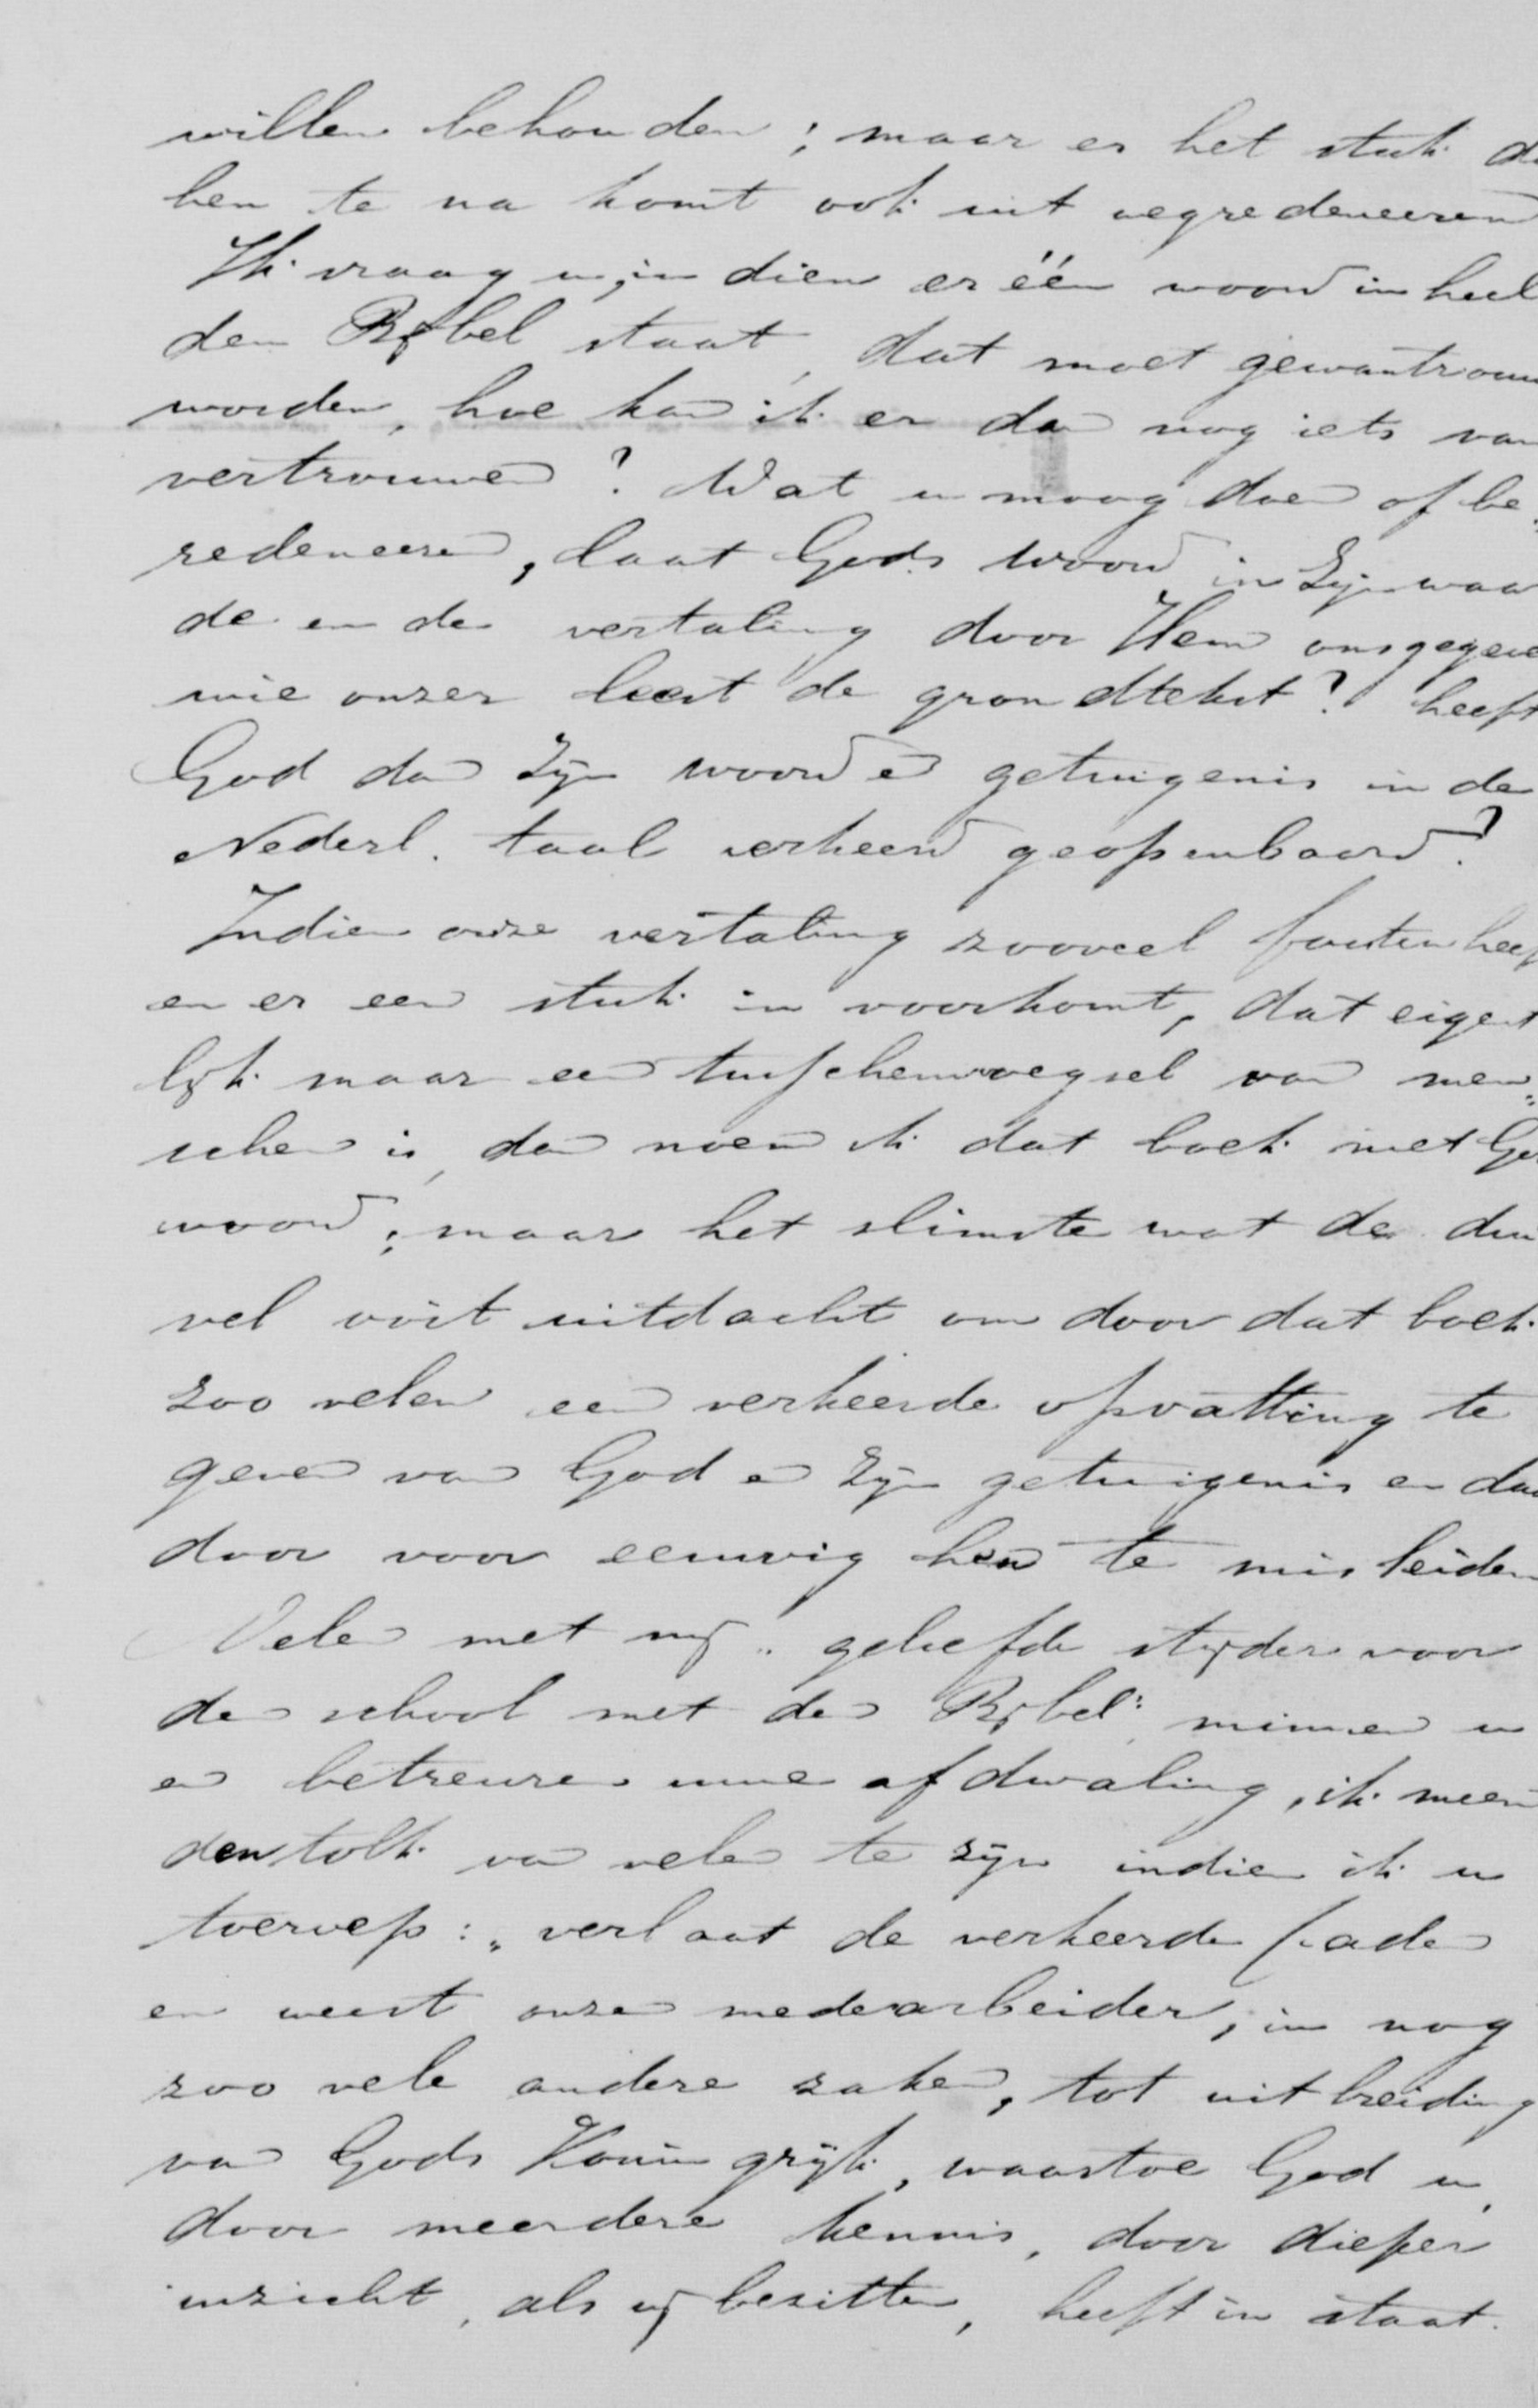 willen behouden; maar er het stuk d
hen te na komt ook uit wegredeneeren
Ik vraag u, in dien er één woord in heel
den Bijbel staat, dat moet gewantrouw
worden, hoe kan ik er dan nog iets van
vertrouwen? Wat u moog doen of be„
redeneeren, laat Gods woord in Zijn waar
de en de vertaling door Hem ons gegeve
wie onzer leest de grondtekst? heeft
God dan Zijn woord en getuigenis in de
Nederl. taal verkeerd geopenbaard?
Indien onze vertaling zooveel fouten heef
en er een stuk in voorkomt, dat eigent
lijk maar een tusschenvoegsel van men„
schen is, dan noem ik dat boek niet Go
woord; maar het slimste wat de dui
vel ooit uitdacht om door dat boek
zoo velen een verkeerde opvatting te
geven van God en Zijn getuigenis en daa
door voor eeuwig hen te misleiden
Velen met mij „geliefde strijders voor
de school met den Bijbel" minnen u
en betreuren uwe afdwaling, ik meen
den tolk van velen te zijn indien ik u
toeroep: „verlaat de verkeerde paden
en weest onze medearbeider, in nog
zoo vele andere zaken, tot uitbreiding
van Gods Koningrijk, waartoe God u,
door meerdere kennis, door dieper
inzicht, als wij bezitten, heeft in staat.